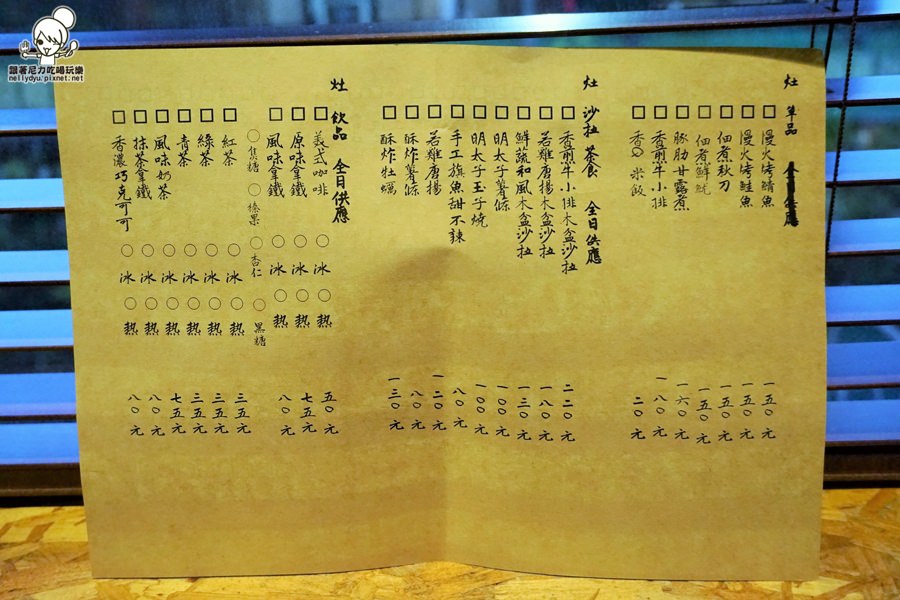 跟著尼力吃喝玩樂
nellydyu.pixnet.net
灶 單品 全日供應
慢火烤鯖魚 一五〇元
慢火烤鮭魚 一五〇元
佃煮秋刀 一五〇元
佃煮鮮魷 一五〇元
豚肋甘露煮 一六〇元
香煎牛小排 一八〇元
香Q米飯 二〇元
灶 沙拉 茶食 全日供應
香煎牛小排木盆沙拉 二二〇元
若雞唐揚木盆沙拉 一八〇元
鮮蔬和風木盆沙拉 一三〇元
明太子薯條 一〇〇元
明太子玉子燒 一〇〇元
手工旗魚甜不辣 八〇元
若雞唐揚 一二〇元
酥炸薯條 八〇元
酥炸牡蠣 一三〇元
灶 飲品 全日供應
義式咖啡 冰 熱 五〇元
原味拿鐵 冰 熱 七五元
風味拿鐵 冰 熱 八〇元
焦糖 榛果 杏仁 黑糖
紅茶 冰 熱 三五元
綠茶 冰 熱 三五元
青茶 冰 熱 三五元
風味奶茶 冰 熱 七五元
抹茶拿鐵 冰 熱 八〇元
香濃巧克可可 冰 熱 八〇元